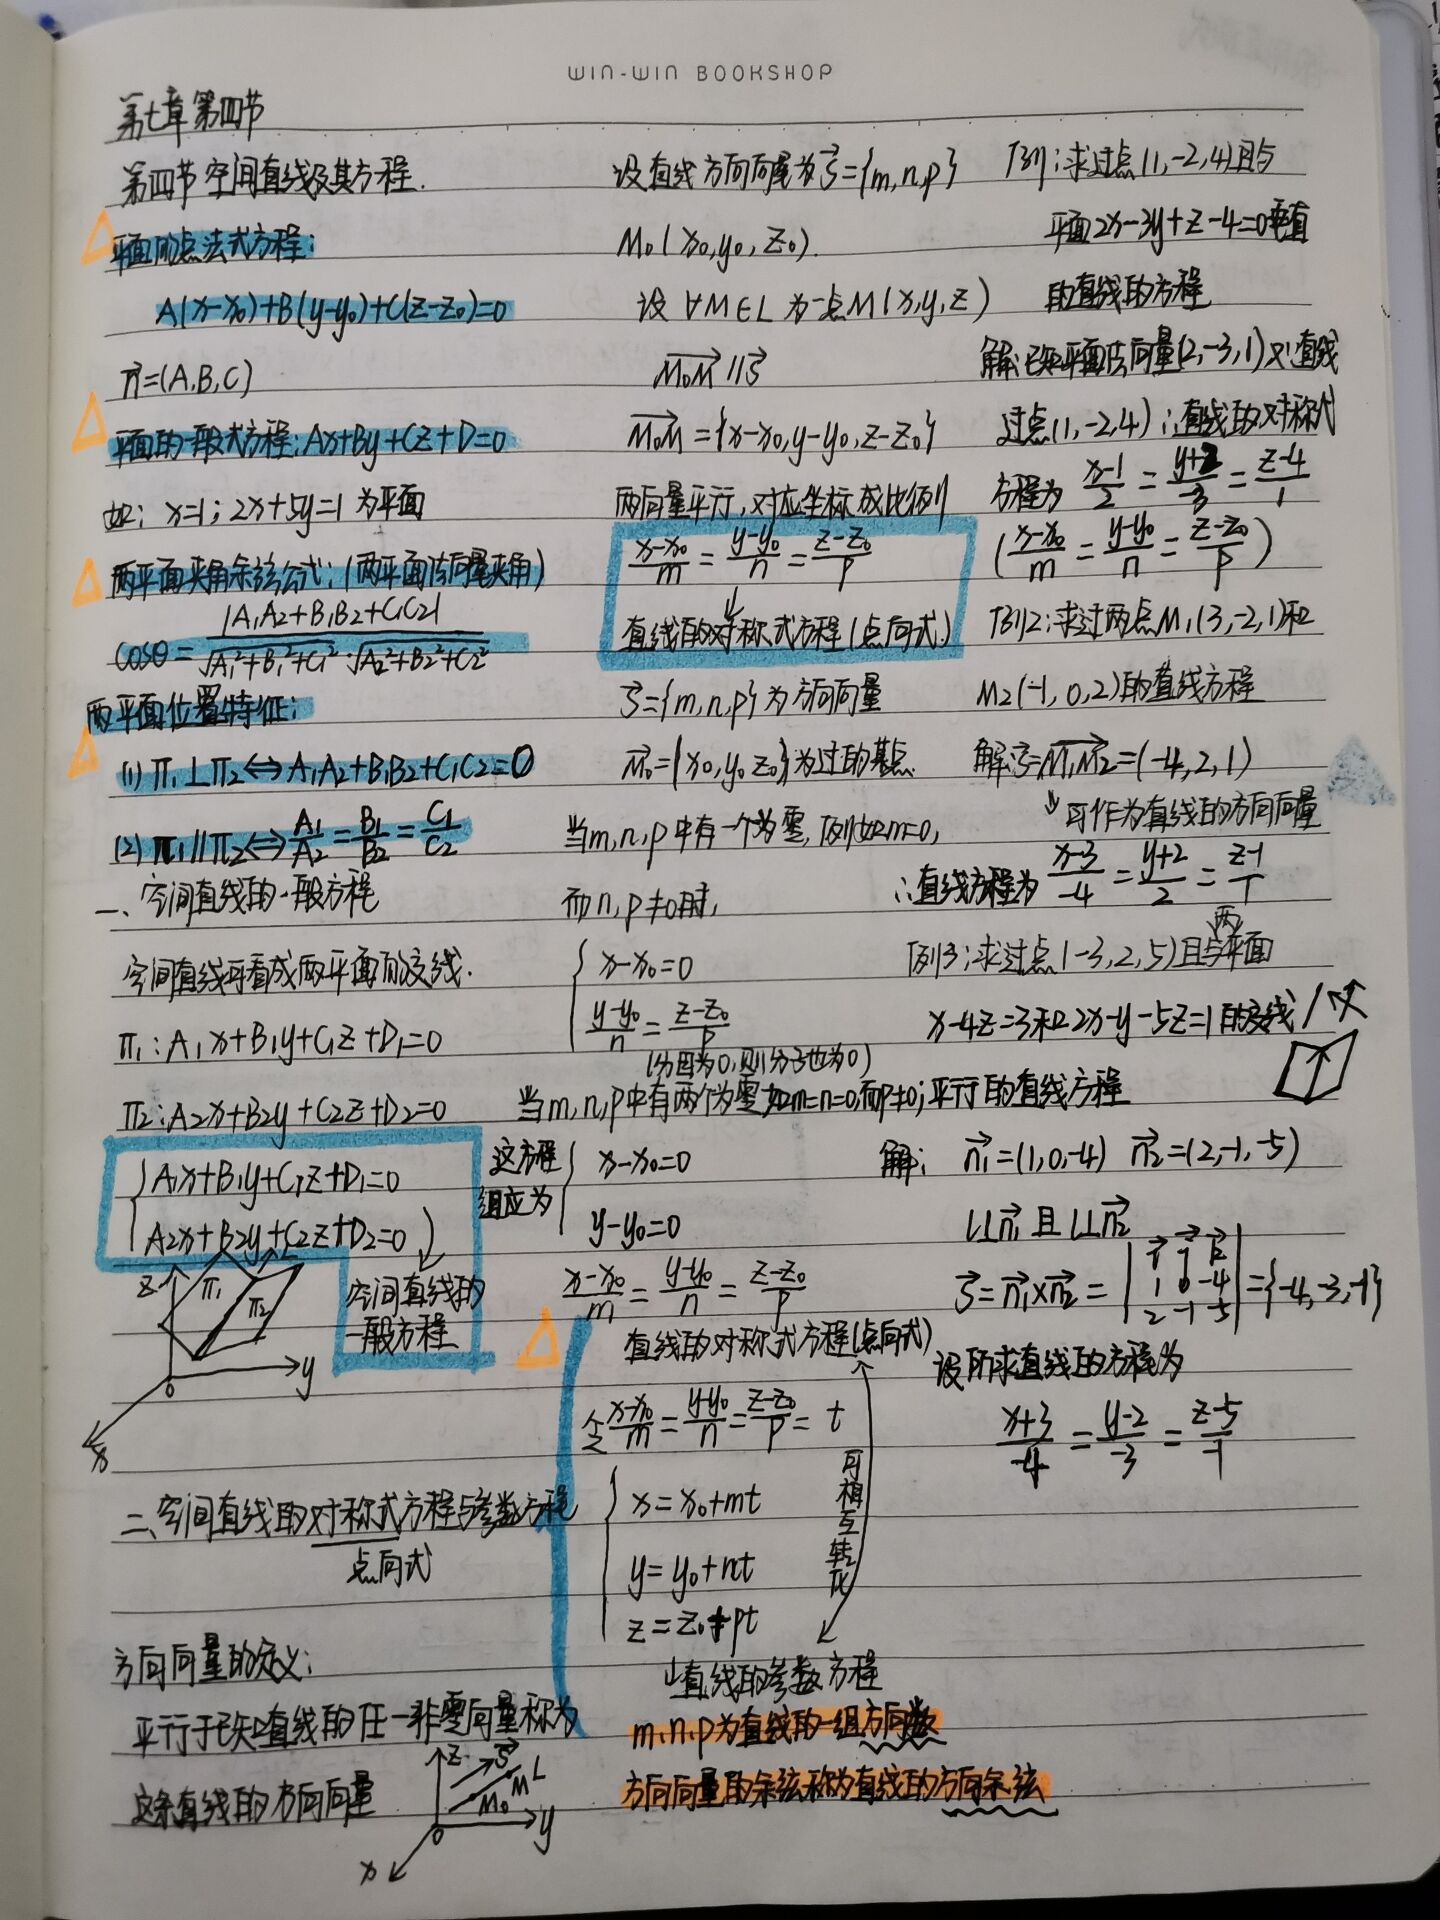 WIN-WIN BOOKSHOP
第七章第四节
第四节 空间直线及其方程.
平面的点法式方程:
A(x-x₀)+B(y-y₀)+C(z-z₀)=0
n⃗=(A,B,C)
平面的一般式方程:Ax+By+Cz+D=0
如: x=1; 2x+5y=1 为平面
两平面夹角余弦公式:(两平面法向量夹角)
cosθ= |A₁A₂+B₁B₂+C₁C₂| / √A₁²+B₁²+C₁²·√A₂²+B₂²+C₂²
两平面位置特征:
(1) π₁⊥π₂⇔A₁A₂+B₁B₂+C₁C₂=0
(2) π₁∥π₂⇔A₁/A₂=B₁/B₂=C₁/C₂
一、空间直线的一般方程
空间直线可看成两平面的交线.
π₁: A₁x+B₁y+C₁z+D₁=0
π₂: A₂x+B₂y+C₂z+D₂=0
A₁x+B₁y+C₁z+D₁=0
A₂x+B₂y+C₂z+D₂=0
空间直线的
一般方程
z π₁ π₂ L
0 y
x
二、空间直线的对称式方程与参数方程
点向式
方向向量的定义:
平行于已知直线的任一非零向量称为
这条直线的方向向量
z s⃗ L
M₀ M
0 y
x
设直线方向向量为s⃗={m,n,p}
M₀(x₀,y₀,z₀).
设 ∀M∈L 为一点M(x,y,z)
M₀M⃗∥s⃗
M₀M⃗={x-x₀,y-y₀,z-z₀}
两向量平行,对应坐标成比例
(x-x₀)/m=(y-y₀)/n=(z-z₀)/p
↓
直线的对称式方程(点向式.)
s⃗={m,n,p}为方向向量
M⃗₀={x₀,y₀,z₀}为过的某点.
当m,n,p中有一个为零,例如m=0,
而n,p≠0时,
x-x₀=0
(y-y₀)/n=(z-z₀)/p
(分母为0,则分子也为0)
当m,n,p中有两个为零如m=n=0,而p≠0;
这方程
组应为
x-x₀=0
y-y₀=0
(x-x₀)/m=(y-y₀)/n=(z-z₀)/p
直线的对称式方程(点向式)
令(x-x₀)/m=(y-y₀)/n=(z-z₀)/p=t
x=x₀+mt
y=y₀+nt
z=z₀+pt
可相互转化
↓直线的参数方程
m,n,p为直线的一组方向数
方向向量的余弦称为直线的方向余弦
例1:求过点(1,-2,4)且与
平面2x-3y+z-4=0垂直
的直线的方程
解:已知平面法向量(2,-3,1)又∵直线
过点(1,-2,4)∴直线的对称式
方程为 (x-1)/2=(y+2)/-3=(z-4)/1
((x-x₀)/m=(y-y₀)/n=(z-z₀)/p)
例2:求过两点M₁(3,-2,1)和
M₂(-1,0,2)的直线方程
解:s⃗=M₁M₂⃗=(-4,2,1)
↓可作为直线的方向向量
∴直线方程为(x-3)/-4=(y+2)/2=(z-1)/1
例3:求过点(-3,2,5)且与两平面
x-4z=3和2x-y-5z=1的交线
平行的直线方程
解: n₁⃗=(1,0,-4) n₂⃗=(2,-1,-5)
L⊥n₁⃗ 且 L⊥n₂⃗
s⃗=n₁⃗×n₂⃗=|i⃗ j⃗ k⃗; 1 0 -4; 2 -1 -5|={-4,-3,-1}
设所求直线的方程为
(x+3)/-4=(y-2)/-3=(z-5)/-1